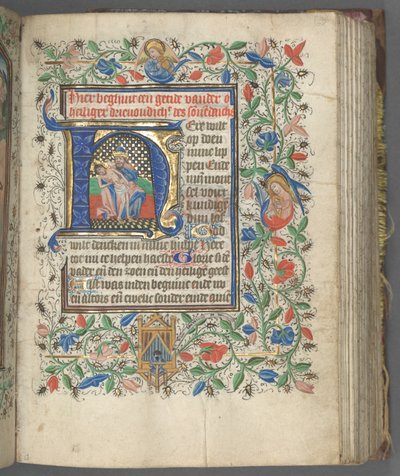 Hier beghint een getide vander
heiliger drievondich^t des sonnendachs
Here wilt
op doen
mine lip
pen Ende
mijn mont
sel voirt
kundigē
dijn lof
God
wilt dencken in mijnre hulpe Here
coe mi te helpen haeste Glorie si dē
vader eñ den zoen eñ den heilighē geest
Als was inden beghinne ende nu
eñ altoes eñ ewelic sonder einde amē